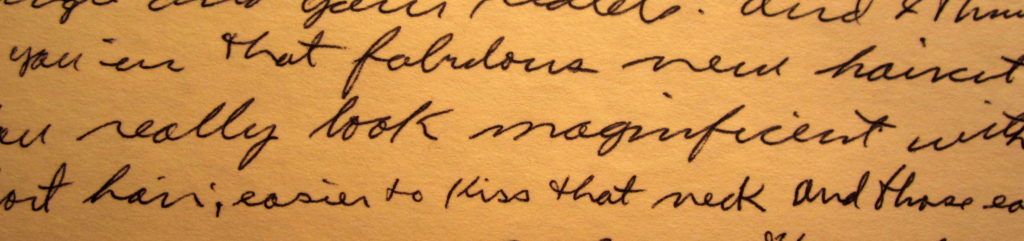 and your
you in that fabulous new haircut
really look magnificent with
hair; easier to kiss that neck and those